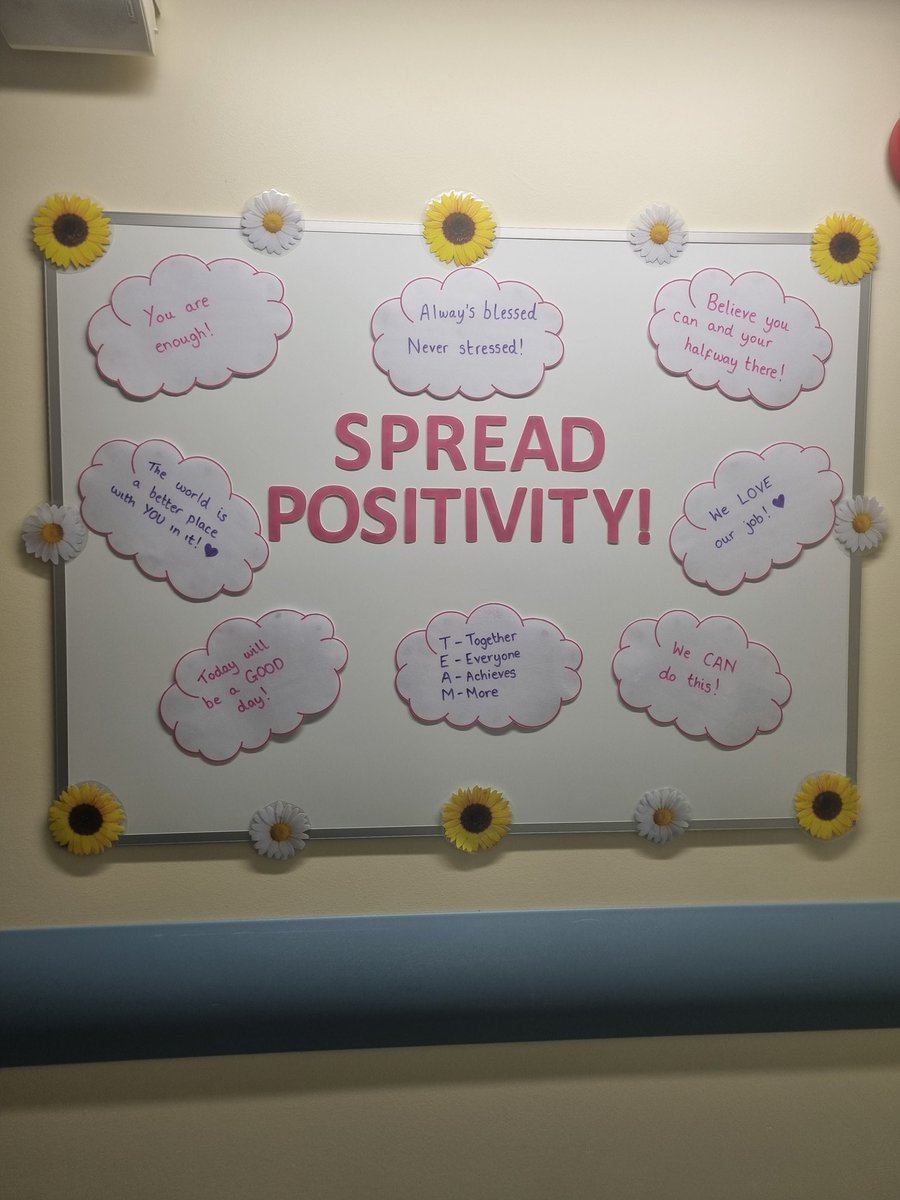 You are
enough!
Alway's blessed
Never stressed!
Believe you
can and your
halfway there!
SPREAD
POSITIVITY!
The world is
a better place
with YOU in it!
We LOVE
our job!
Today will
be a GOOD
day!
T - Together
E - Everyone
A - Achieves
M - More
We CAN
do this!